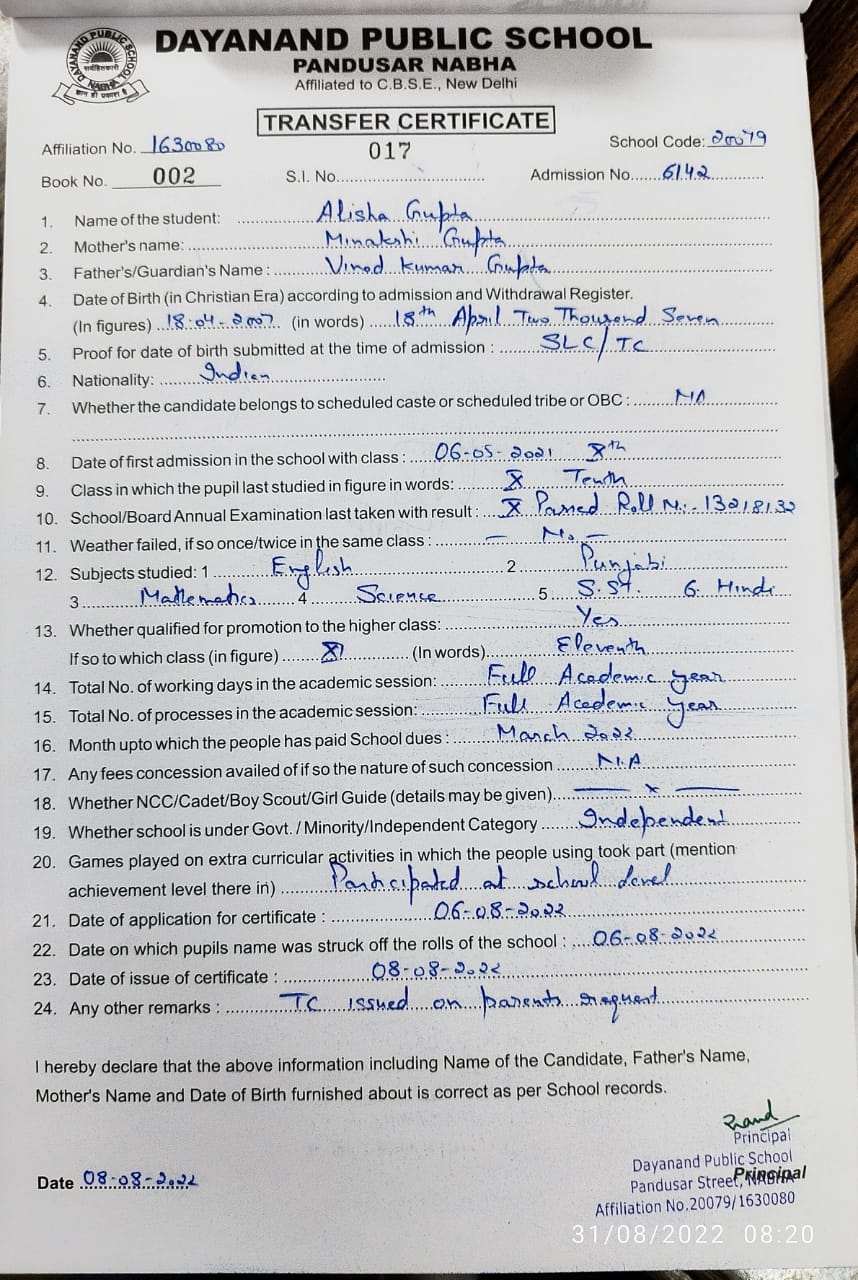 DAYANAND PUBLIC SCHOOL
PANDUSAR NABHA
Affiliated to C.B.S.E., New Delhi
DAYANAND PUBLIC SCHOOL
NABHA
TRANSFER CERTIFICATE
Affiliation No. 1630080 017 School Code: 20079
Book No. 002 S.I. No. Admission No. 6142
1. Name of the student: Alisha Gupta
2. Mother's name: Minakshi Gupta
3. Father's/Guardian's Name : Vinod Kumar Gupta
4. Date of Birth (in Christian Era) according to admission and Withdrawal Register.
(In figures) 18-04-2007 (in words) 18th April Two Thousand Seven
5. Proof for date of birth submitted at the time of admission : SLC/TC
6. Nationality: Indian
7. Whether the candidate belongs to scheduled caste or scheduled tribe or OBC : NA
8. Date of first admission in the school with class : 06-05-2021 Xth
9. Class in which the pupil last studied in figure in words: X Tenth
10. School/Board Annual Examination last taken with result : X Passed Roll No:- 13218132
11. Weather failed, if so once/twice in the same class : — No —
12. Subjects studied: 1 English 2 Punjabi
3 Mathematics 4 Science 5 S.St. 6. Hindi
13. Whether qualified for promotion to the higher class: Yes
If so to which class (in figure) XI (In words) Eleventh
14. Total No. of working days in the academic session: Full Academic year
15. Total No. of processes in the academic session: Full Academic year
16. Month upto which the people has paid School dues : March 2022
17. Any fees concession availed of if so the nature of such concession N.A
18. Whether NCC/Cadet/Boy Scout/Girl Guide (details may be given) — x —
19. Whether school is under Govt. / Minority/Independent Category Independent
20. Games played on extra curricular activities in which the people using took part (mention
achievement level there in) Participated at school level
21. Date of application for certificate : 06-08-2022
22. Date on which pupils name was struck off the rolls of the school : 06-08-2022
23. Date of issue of certificate : 08-08-2022
24. Any other remarks : TC issued on parents request
I hereby declare that the above information including Name of the Candidate, Father's Name,
Mother's Name and Date of Birth furnished about is correct as per School records.
Principal
Dayanand Public School
Principal
Pandusar Street, NABHA
Date 08-08-2022
Affiliation No.20079/1630080
31/08/2022 08:20